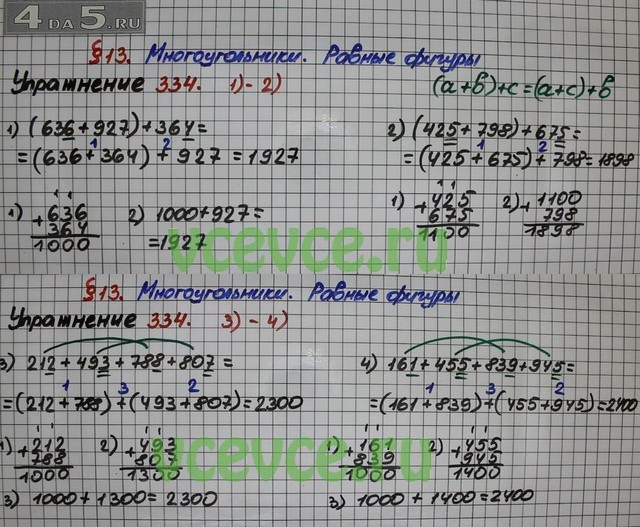 4 DA 5.RU
§13. Многоугольники. Равные фигуры
Упражнение 334. 1)-2)
(a+b)+c=(a+c)+b
1) (636+927)+364=
=(636+364)+927=1927
1 2
2) (425+798)+675=
=(425+675)+798=1898
1 2
1) +636
364
1000
2) 1000+927=
=1927
1) +425
675
1100
2) +1100
798
1898
vcevce.ru
§13. Многоугольники. Равные фигуры
Упражнение 334. 3)-4)
3) 212+493+788+807=
1 3 2
=(212+788)+(493+807)=2300
4) 161+455+839+945=
1 3 2
=(161+839)+(455+945)=2400
1) +212
788
1000
2) +493
807
1300
3) 1000+1300=2300
1) +161
839
1000
2) +455
945
1400
3) 1000+1400=2400
vcevce.ru